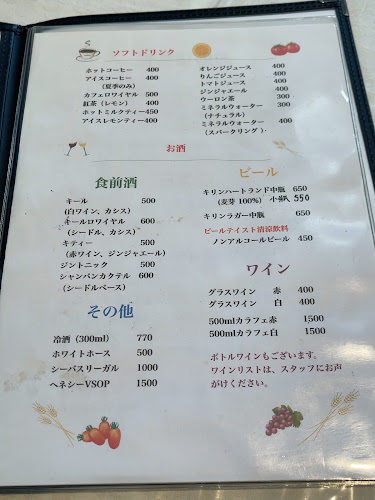 ソフトドリンク
ホットコーヒー 400
アイスコーヒー 400
(夏季のみ)
カフェロワイヤル 500
紅茶(レモン) 400
ホットミルクティー450
アイスレモンティー400
オレンジジュース 400
りんごジュース 400
トマトジュース 400
ジンジャエール 400
ウーロン茶 300
ミネラルウォーター 300
(ナチュラル)
ミネラルウォーター 400
(スパークリング)
お酒
食前酒
キール 500
(白ワイン、カシス)
キールロワイヤル 600
(シードル、カシス)
キティー 500
(赤ワイン、ジンジャエール)
ジントニック 500
シャンパンカクテル 600
(シードルベース)
その他
冷酒(300ml) 770
ホワイトホース 500
シーバスリーガル 1000
ヘネシーVSOP 1500
ビール
キリンハートランド中瓶 650
(麦芽 100%) 小瓶 550
キリンラガー中瓶 650
ビールテイスト清涼飲料
ノンアルコールビール 450
ワイン
グラスワイン 赤 400
グラスワイン 白 400
500mlカラフェ赤 1500
500mlカラフェ白 1500
ボトルワインもございます。
ワインリストは、スタッフにお声
がけください。